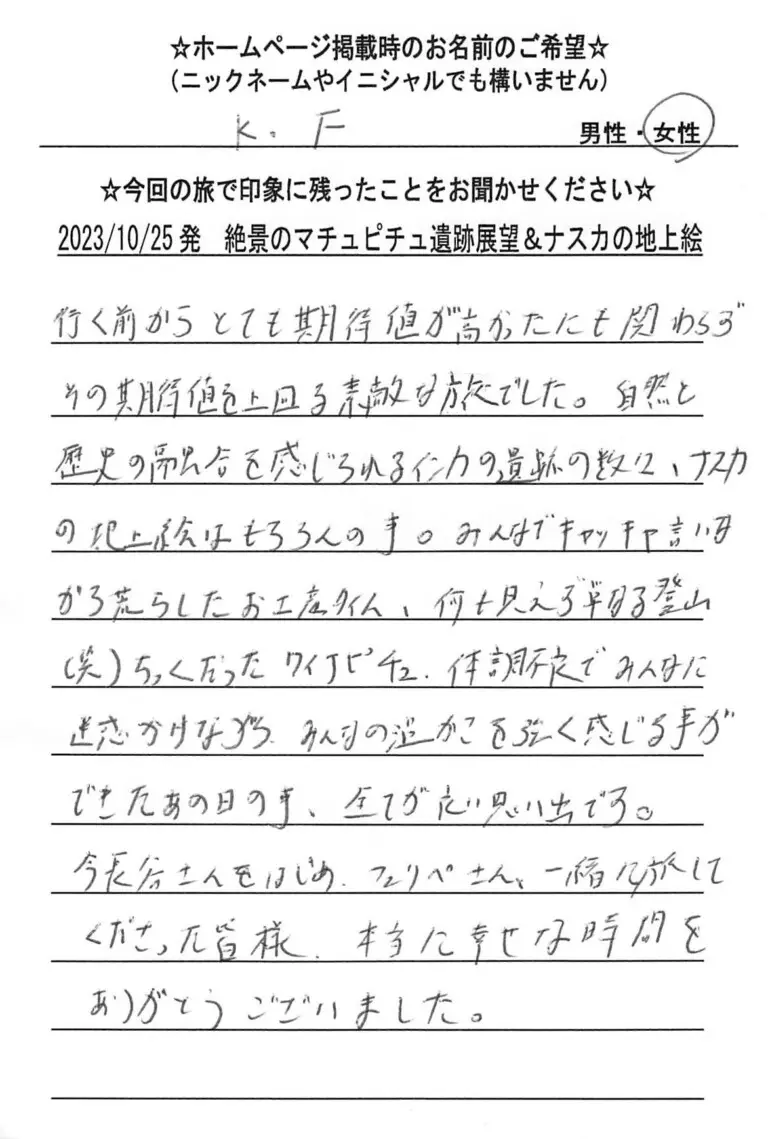 ☆ホームページ掲載時のお名前のご希望☆
(ニックネームやイニシャルでも構いません)
K. F 男性・女性
☆今回の旅で印象に残ったことをお聞かせください☆
2023/10/25発 絶景のマチュピチュ遺跡展望&ナスカの地上絵
行く前からとても期待値が高かったにも関わらず
その期待値を上回る素敵な旅でした。自然と
歴史の融合を感じられるインカの遺跡の数々、ナスカ
の地上絵はもちろんの事。みんなでキャッキャ言いな
がら荒らしたお土産タイム、何も見えず単なる登山
(笑)ちっくだったワイナピチュ、体調不良でみんなに
迷惑かけながら、みんなの温かさを強く感じる事が
できたあの日の事、全てが良い思い出です。
今長谷さんをはじめ、フェリペさん、一緒に旅して
くださった皆様、本当に幸せな時間を
ありがとうございました。